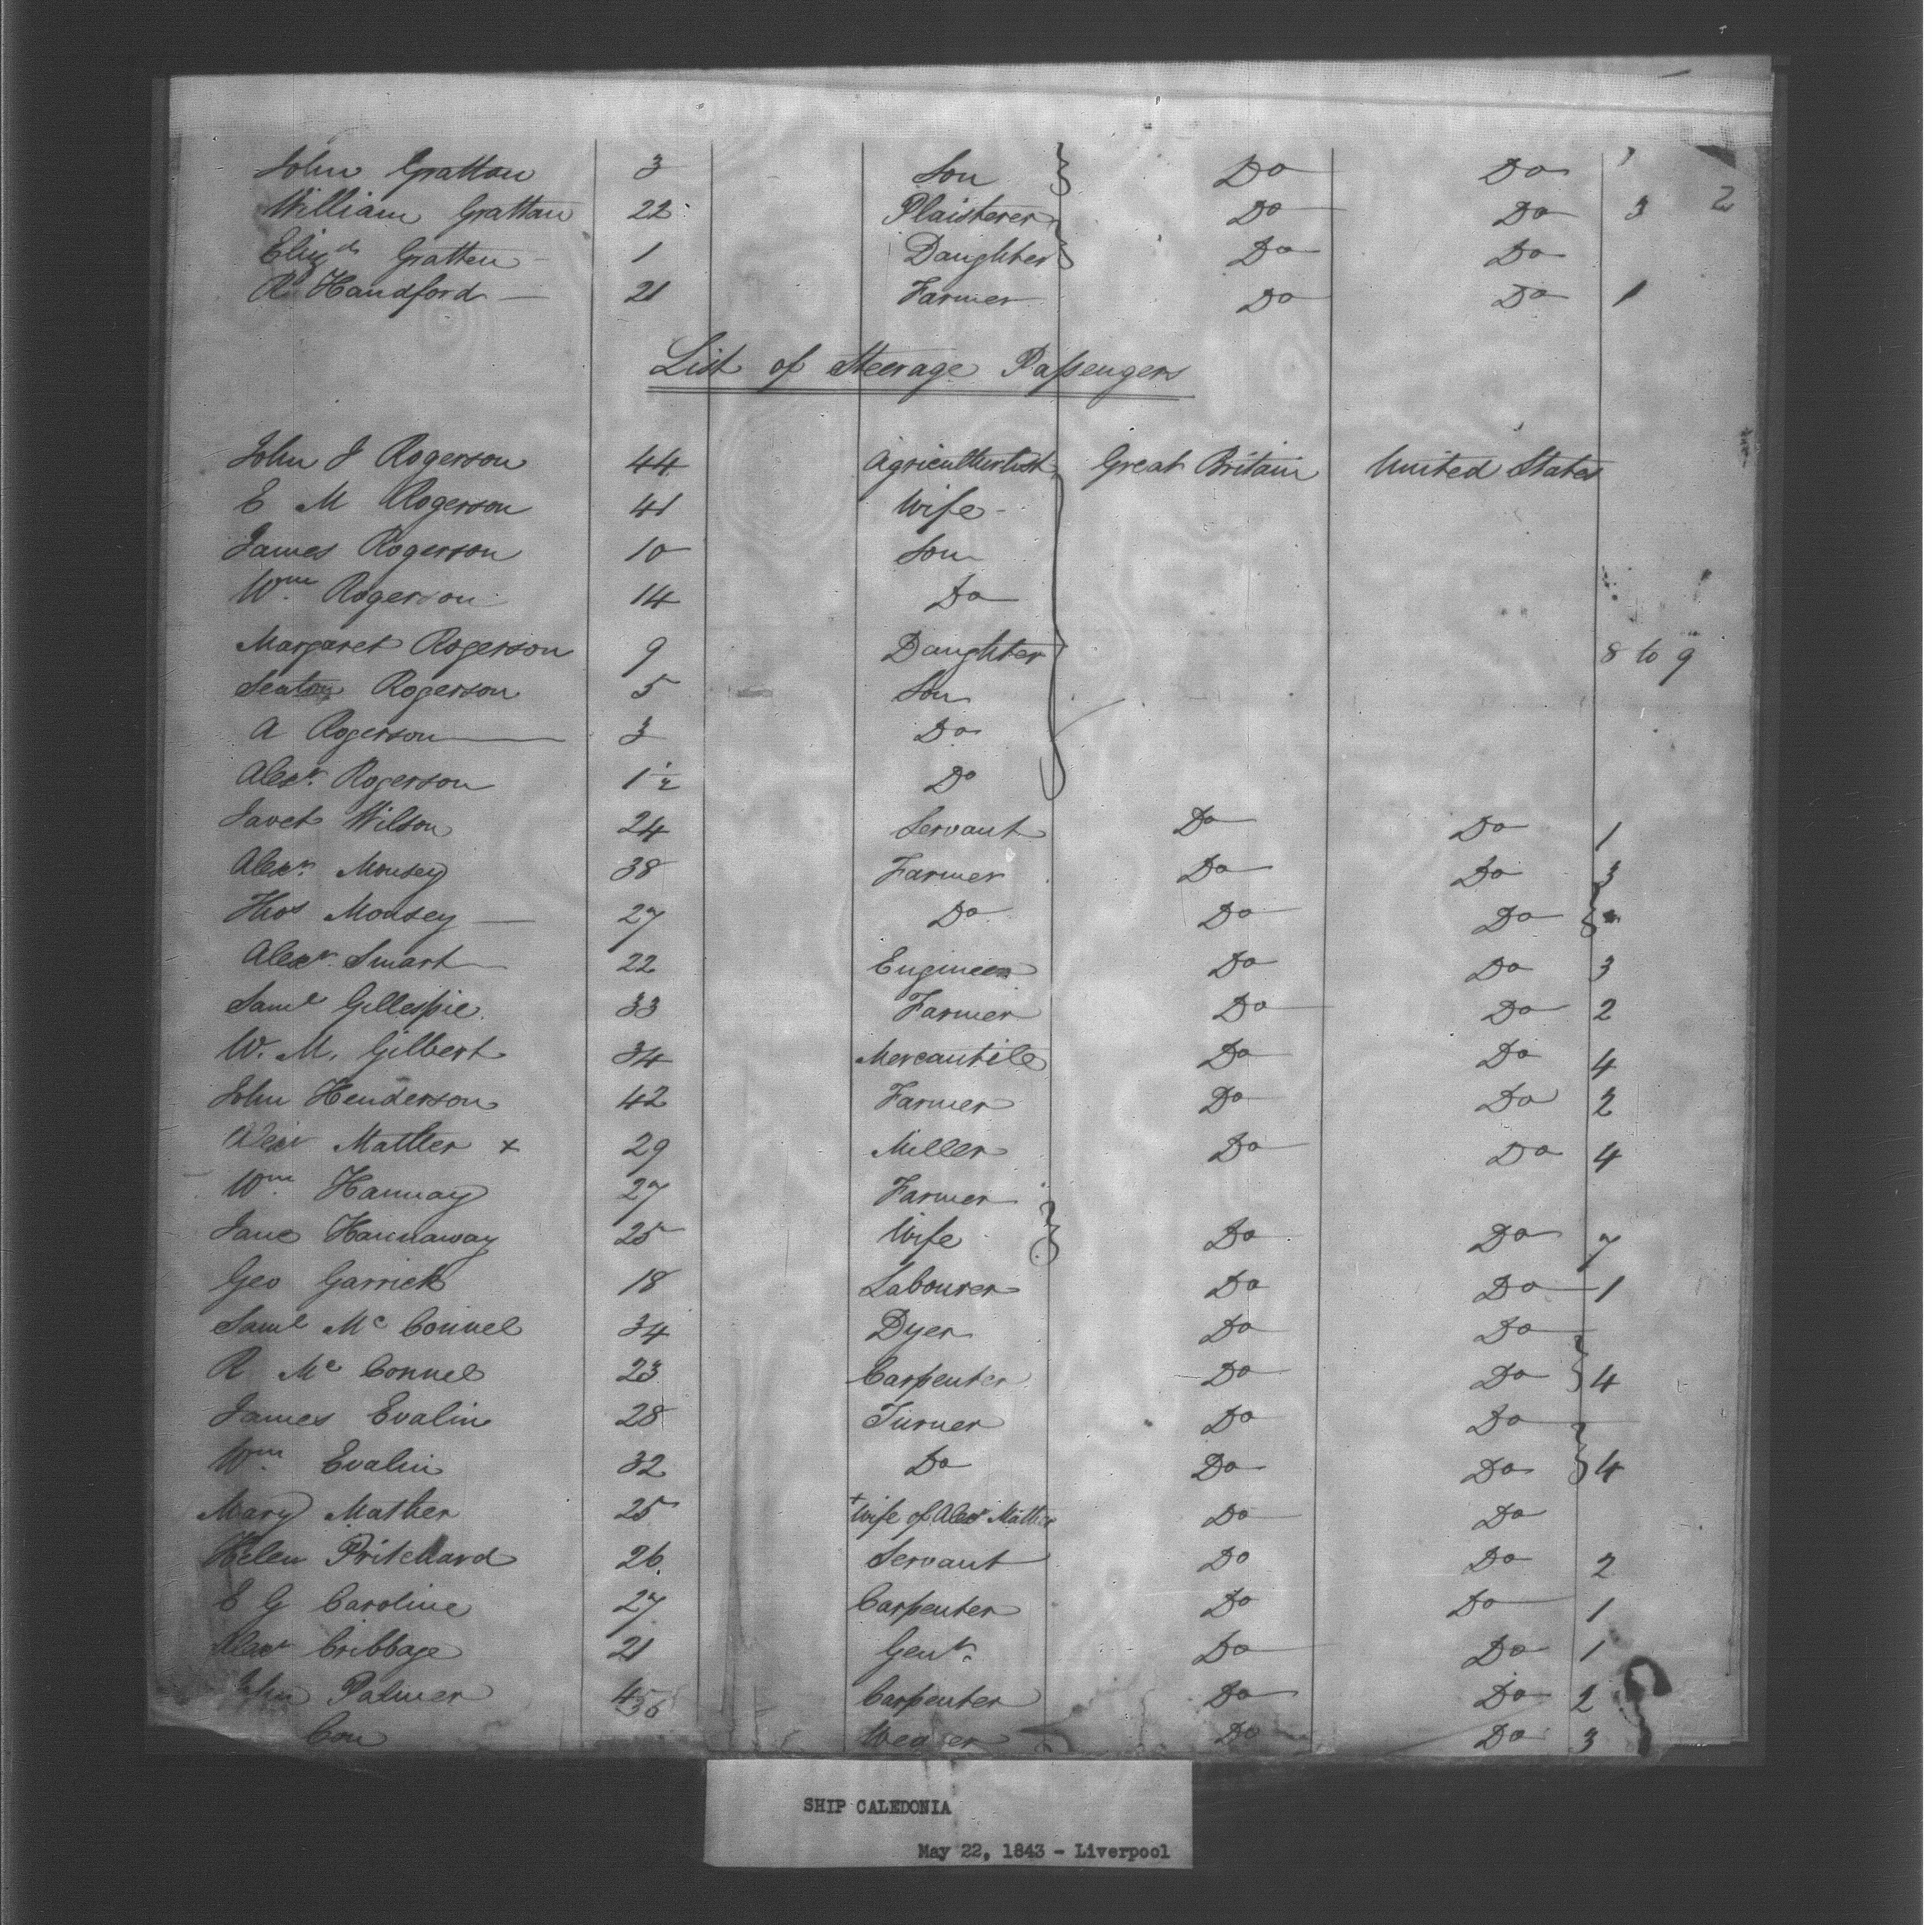 John Grattan 3 Son Do Do
William Grattan 22 Plaisterer Do Do 3 2
Elizth Gratten 1 Daughter Do Do
Rd Handford 21 Farmer Do Do 1
List of Steerage Passengers
John J Rogerson 44 Agriculturist Great Britain United States
E M Rogerson 41 Wife
James Rogerson 10 Son
Wm Rogerson 14 Do
Margaret Rogerson 9 Daughter 8 to 9
Seaton Rogerson 5 Son
A Rogerson 3 Do
Alexr. Rogerson 1 1/2 Do
Janet Wilson 24 Servant Do Do 1
Alexr. Mousey 38 Farmer Do Do 3
Thos Mousey 27 Do Do Do
Alexr. Smart 22 Engineer Do Do 3
Saml Gillespie 33 Farmer Do Do 2
W. M. Gilbert 34 Mercantile Do Do 4
John Henderson 42 Farmer Do Do 2
Alexr Mather + 29 Miller Do Do 4
Wm Hannay 27 Farmer
Jane Hannaway 25 Wife Do Do 7
Geo Garrick 18 Labourer Do Do 1
Saml Mc Connel 34 Dyer Do Do
R Mc Connel 23 Carpenter Do Do 4
James Evalin 28 Turner Do Do
Wm Evalin 32 Do Do Do 4
Mary Mather 25 + Wife of Alexr Mather Do Do
Helen Pritchard 26 Servant Do Do 2
E G Caroline 27 Carpenter Do Do 1
Alexr Cribbage 21 Gent. Do Do 1
John Palmer 45 Carpenter Do Do 2
Con 36 Weaver Do Do 3
SHIP CALEDONIA
May 22, 1843 - Liverpool